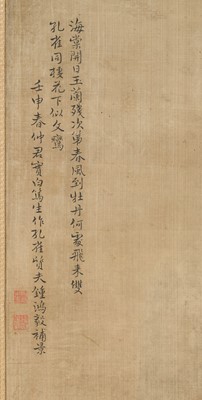 海棠開日玉蘭殘次第春風到牡丹何處飛来雙
孔雀同棲花下似文鸞
壬申春仲君實白篤生作孔雀質夫鍾鴻毅補景